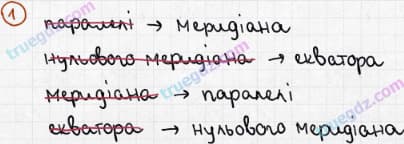 1 паралелі → меридіана
нульового меридіана → екватора
меридіана → паралелі
екватора → нульового меридіана
truegdz.com
truegdz.com
truegdz.com